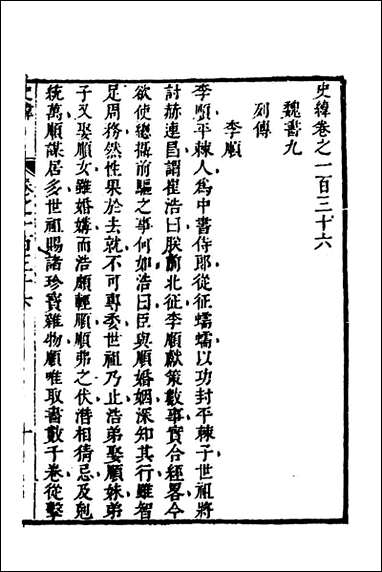 史緯卷之一百三十六
魏書九
列傳
李順
李順平棘人為中書侍郎從征蠕蠕以功封平棘子世祖將
討赫連昌謂崔浩曰朕前北征李順獻策數事實合經畧今
欲使總攝前驅之事何如浩曰臣與順婚姻深知其行雖智
足周務然性果於去就不可專委世祖乃止浩弟娶順妹弟
子又娶順女雖婚媾而浩頗輕順順弗之伏潛相猜忌及剋
統萬順謀居多世祖賜諸珍寶雜物順唯取書數千卷從擊